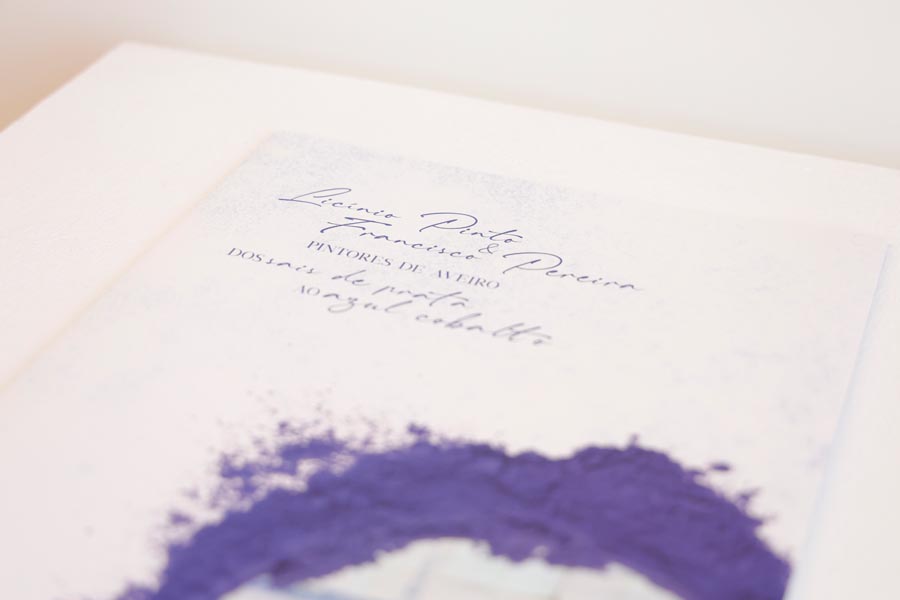 Licínio Pinto
& Francisco Pereira
PINTORES DE AVEIRO
DOS sais de prata
AO azul cobalto